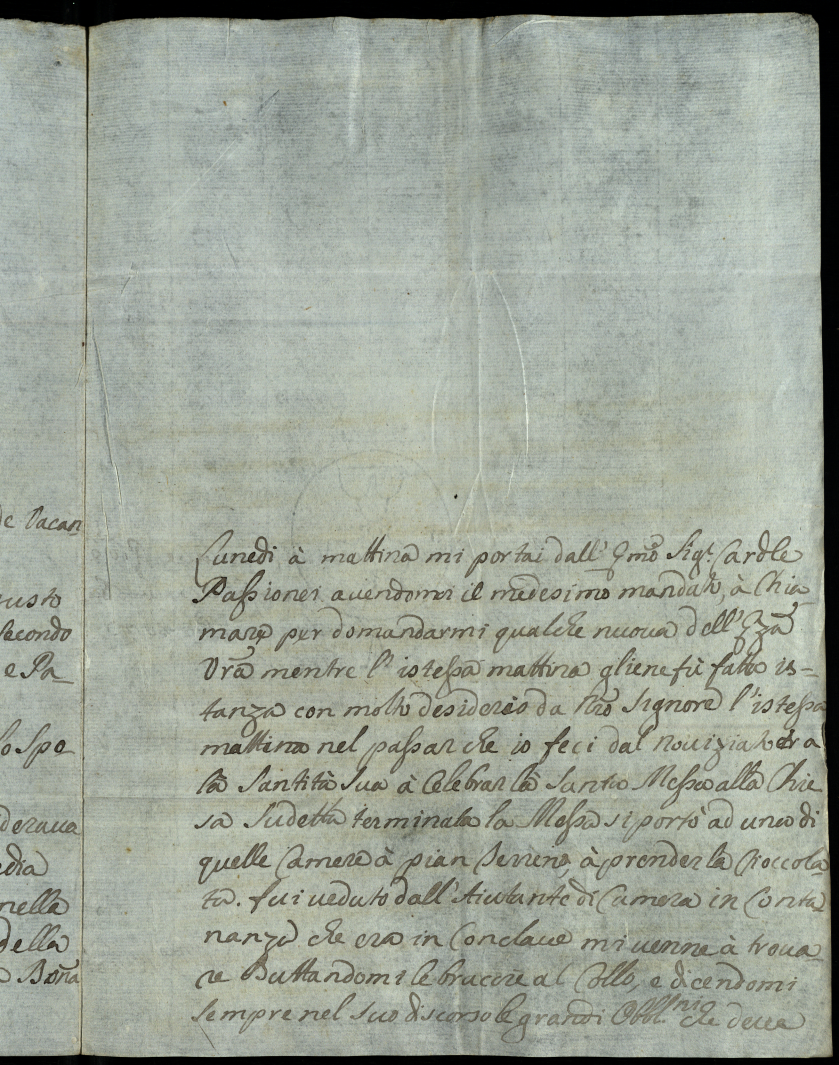 de Vacan
gusto
secondo
e Pa_
lo spe
derava
edia
nella
della
Bona
Lunedi à mattina mi portai dall' Emo Sig.r Cardle
Passionei avendomi il medesimo mandato, à Chia
mare per domandarmi qualche nuova dell' Eza
Vra mentre l' istessa mattina gliene fù fatto is=
tanza con molto desiderio da Nro Signore l' istessa
mattina nel passar che io feci dal Noviziato era
la Santità Sua à Celebrar la Santa Messa alla Chie
sa Sudetta terminata la Messa si portò ad una di
quelle Camere à pian Terreno, à prender la Cioccola_
ta. fui veduto dall' Aiutante di Camera in Conta_
nanza che era in Conclave mi venne à trova_
re Buttandomi le braccie al Collo, e dicendomi
sempre nel suo discorso le grandi Obbl.ni che deve